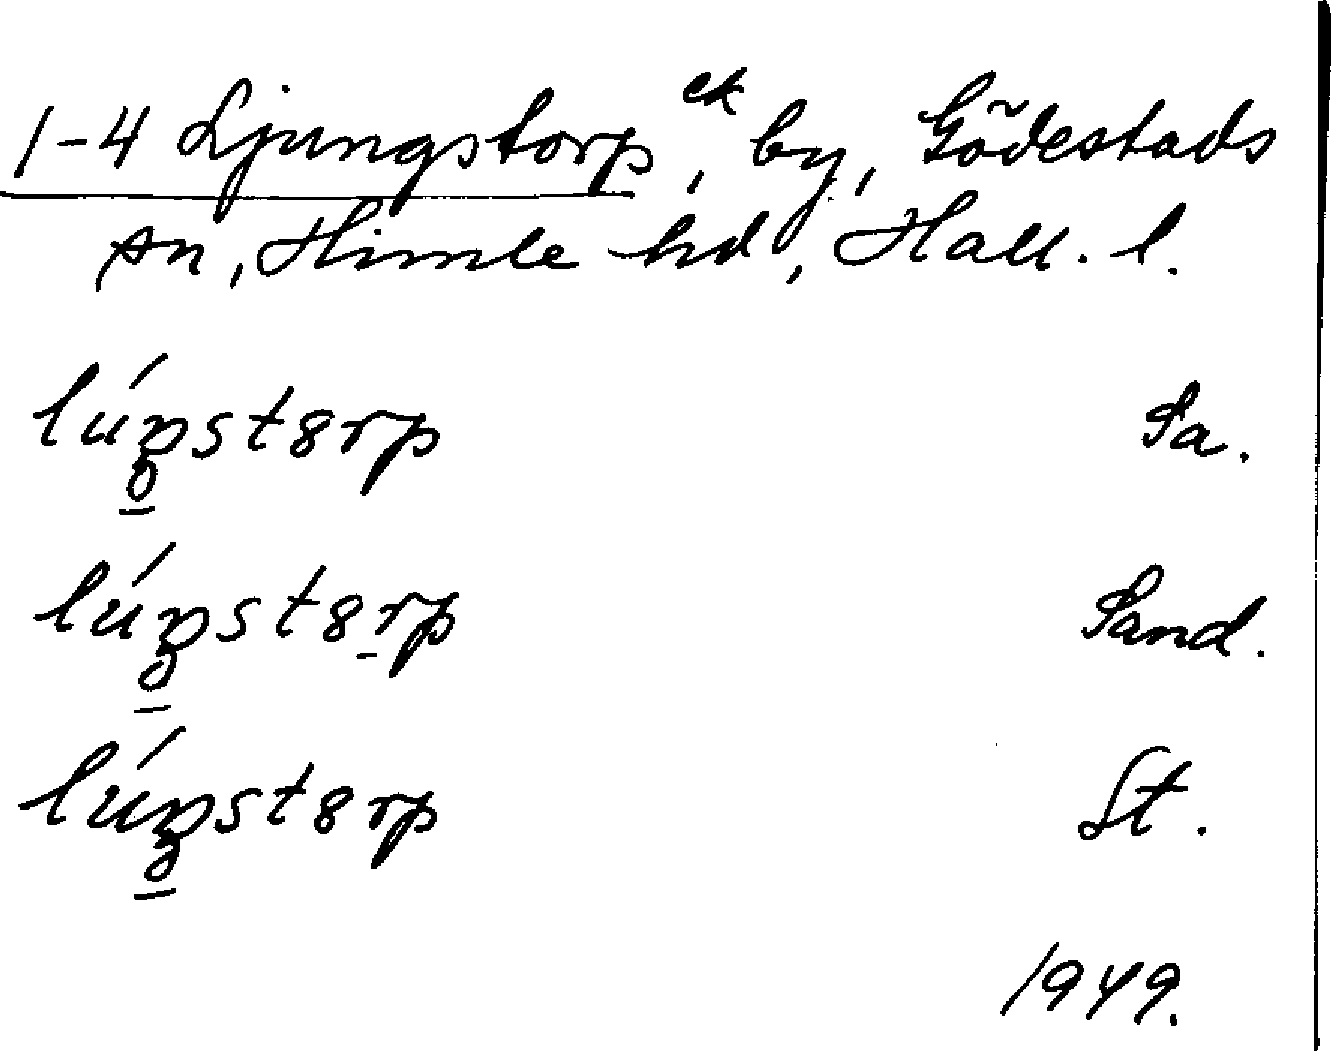 1-4 Ljungstorp ek, by, Gödestads
sn, Himle hd, Hall. l.
lúŋstɤrp Sa.
lúŋstɤrp Sand.
lúŋstɤrp St.
1949.